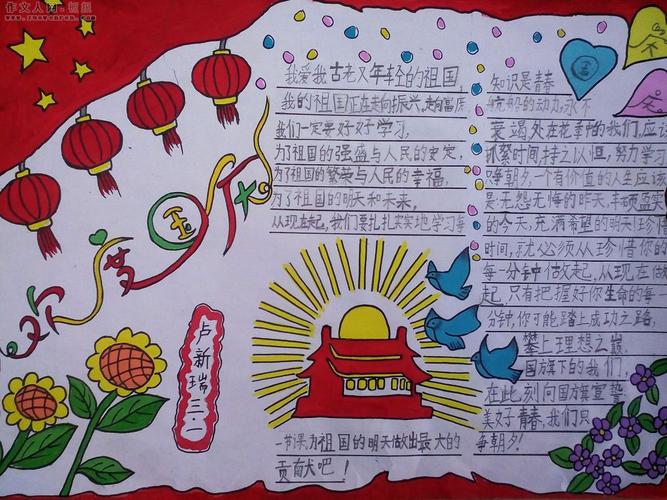 作文人网
欢度国庆
我爱我古老又年轻的祖国,
我的祖国正在走向振兴,走向富店
我们一定要好好学习,
为了祖国的强盛与人民的安定,
为了祖国的繁荣与人民的幸福,
为了祖国的明天和未来,
从现在起,我们要扎扎实实地学习每
一节课,为祖国的明天做出最大的
贡献吧!
知识是青春
航船的动力,永不
衰竭。处在花季的我们,应
抓紧时间,持之以恒,努力学习
争朝夕。一个有价值的人生应该
是:无怨无悔的昨天,丰硕盈实
的今天,充满希望的明天!珍惜
时间,就必须从珍惜你的
每一分钟做起,从现在做
起,只有把握好你生命的每一
分钟,你可能踏上成功之路,
攀上理想之巅
国旗下的我们,
在此刻向国旗宣誓
美好青春,我们只
争朝夕!
卢新瑞三.